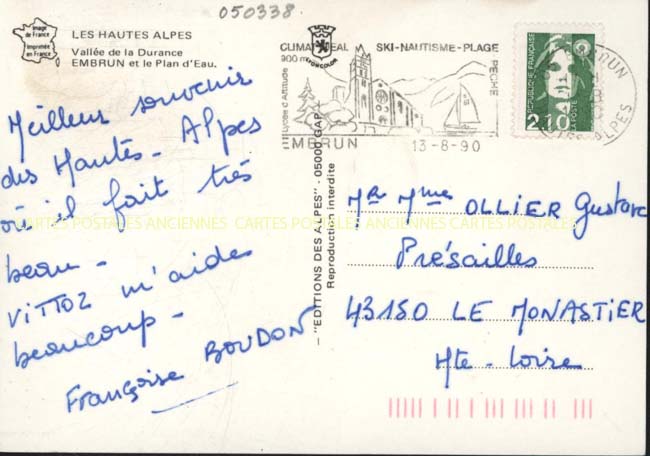 050338.
Image
de France
Imprimée
en France
LES HAUTES ALPES
Vallée de la Durance
EMBRUN et le Plan d'Eau.
Meilleur souvenir
des Hautes-Alpes
où il fait très
beau -
VITTOZ m'aide
beaucoup -
Françoise BOUDON
- "EDITIONS DES ALPES" - 05000 GAP -
Reproduction interdite
CLIMAT IDEAL SKI-NAUTISME-PLAGE
900 m
d'Altitude
Lycée
PECHE
EMBRUN 13-8-90
EMBRUN
HTES ALPES
REPUBLIQUE FRANÇAISE
LA POSTE
2,10
Mr Mme OLLIER Gustave
Présailles
43150 LE MONASTIER
Hte-Loire
CARTES POSTALES ANCIENNES CARTES POSTALES ANCIENNES CARTES POSTALES